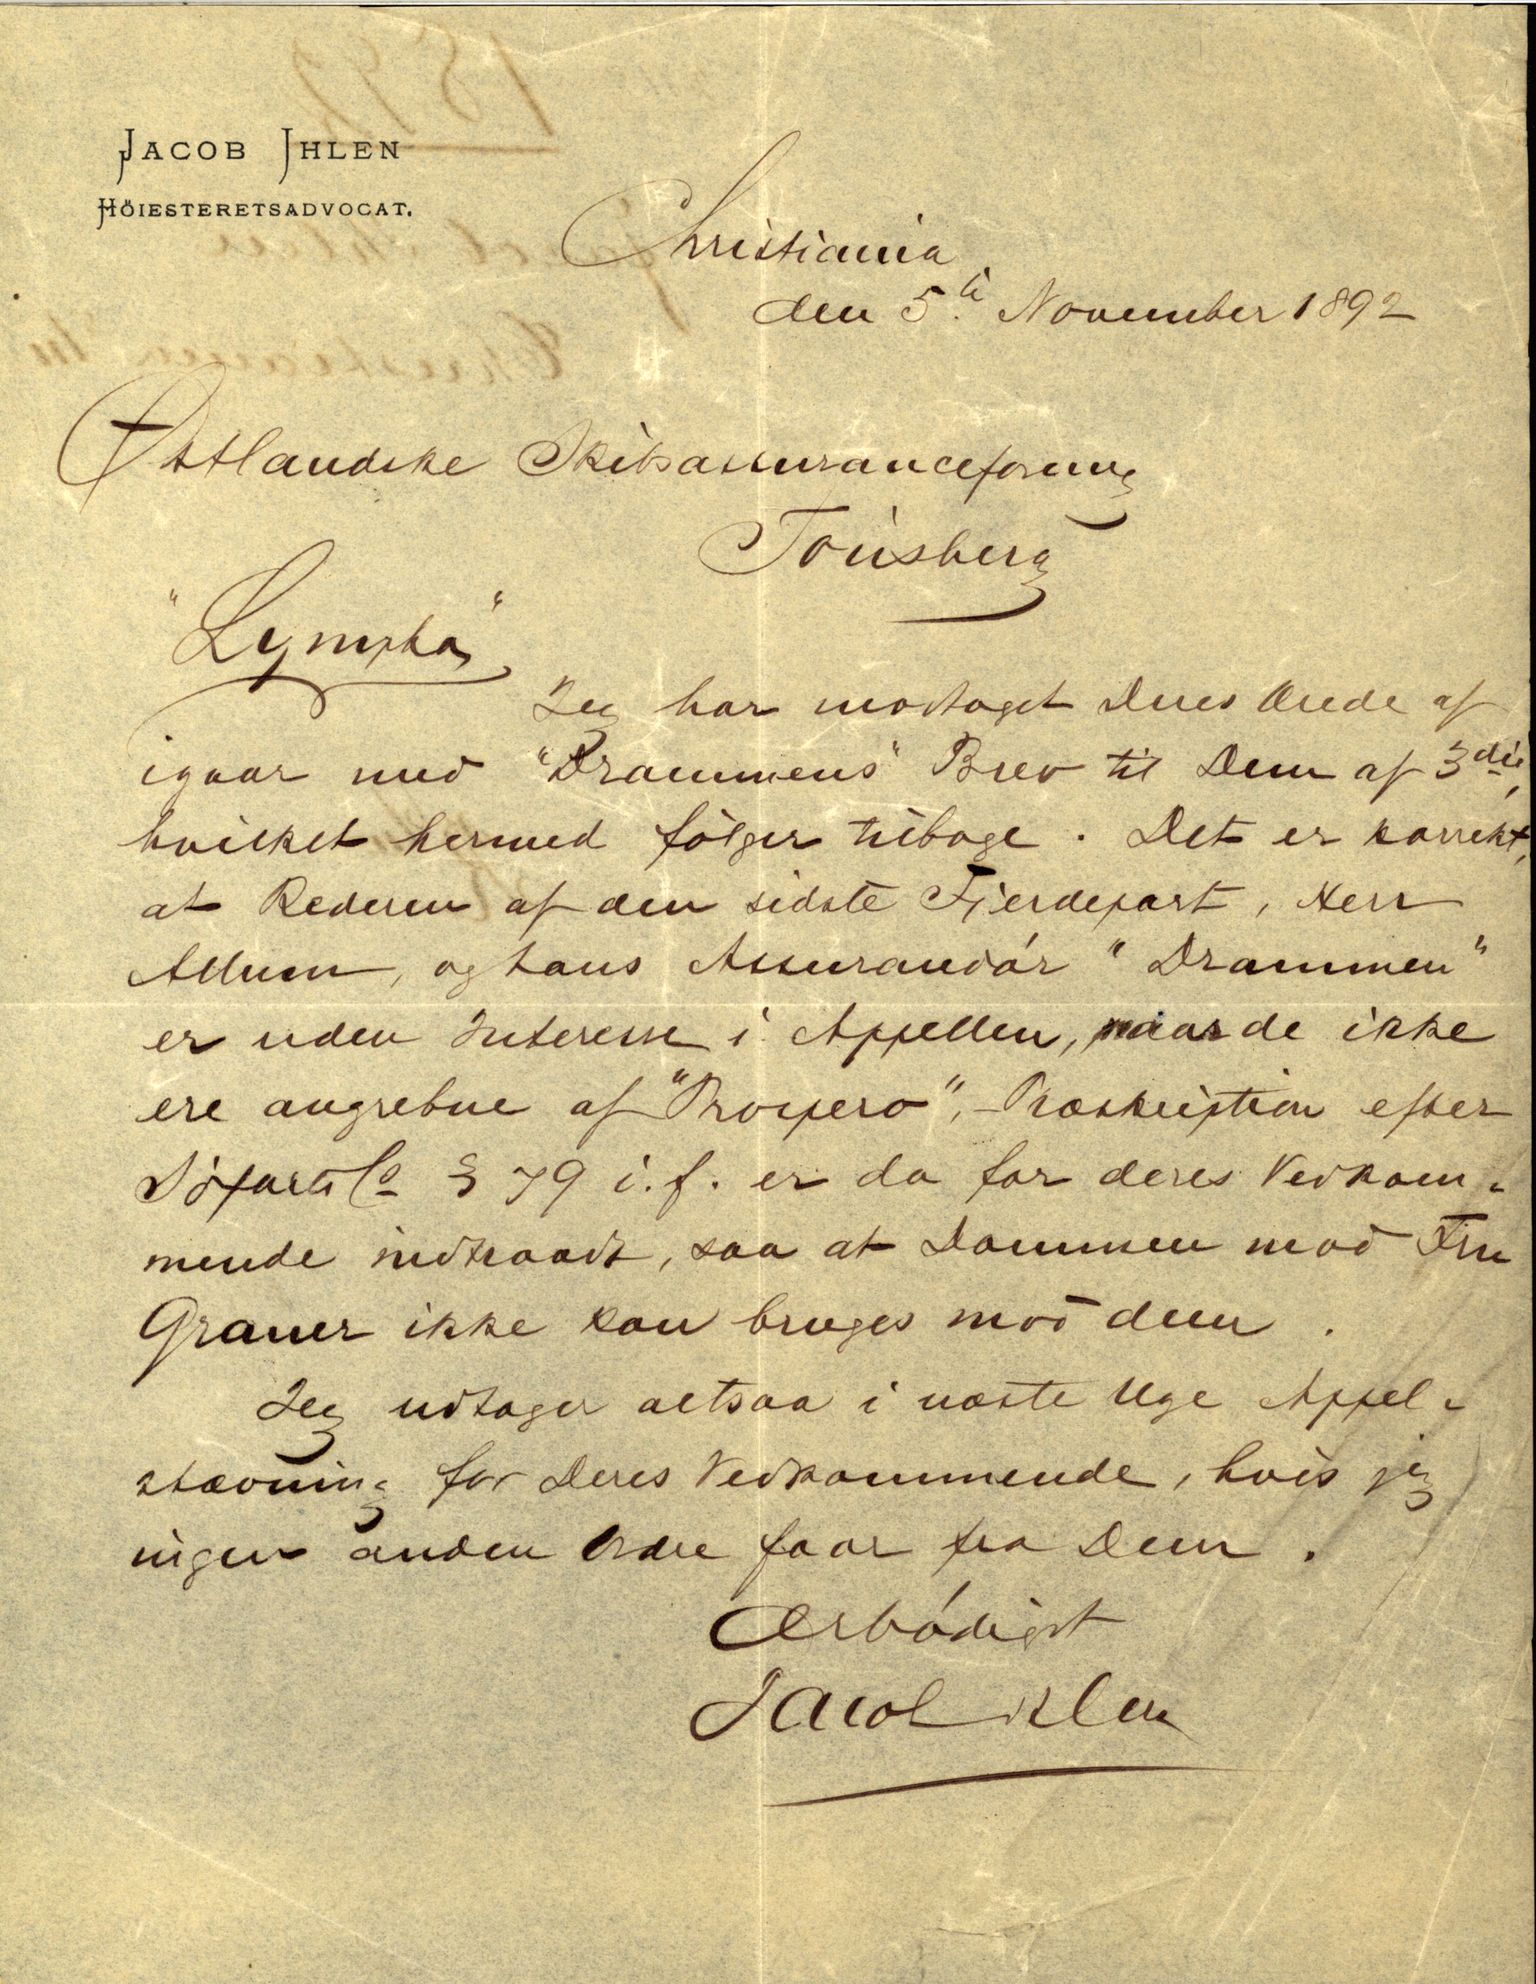 JACOB IHLEN
HÖIESTERETSADVOCAT.
Christiania
den 5te November 1892
Østlandske Skibsassuranceforening
Tønsberg
"Lympha"
Jeg har modtaget Deres Ærede af
igaar med "Drammens" Brev til Dem af 3die,
hvilket hermed følger tilbage. Det er korrekt,
at Rederen af den sidste Fjerdepart, Herr
Allum, og hans Assurandör "Drammen"
er uden Interesse i Appellen, naar de ikke
ere angrebne af "Prospero", - Præskription efter
Søfarts Lo § 79 i.f. er da for deres Vedkom-
mende indtraadt, saa at Dommen mod Fru
Graner ikke kan bruges mod dem.
Jeg udtager altsaa i næste Uge Appel-
stævning for Deres Vedkommende, hvis jeg
ingen anden Ordre faar fra Dem.
Ærbødigst
Jacob Ihlen